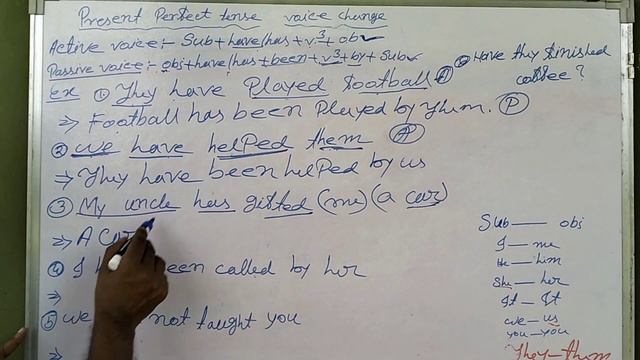 Present Perfect tense voice change
Active voice:- Sub+have/has+v³+obj
Passive voice:- obj+have/has+been+v³+by+Sub
Ex ① They have Played football Ⓐ
⇒ Football has been Played by them. Ⓟ
② we have helped them Ⓐ
⇒ They have been helped by us
③ My uncle has gifted (me) (a car)
⇒ A Car
④ I been called by her
⇒
⑤ we not taught you
⇒
⑥ Have they finished
coffee?
Sub — obj
I — me
He — him
She — her
It — It
we — us
you — you
They — them